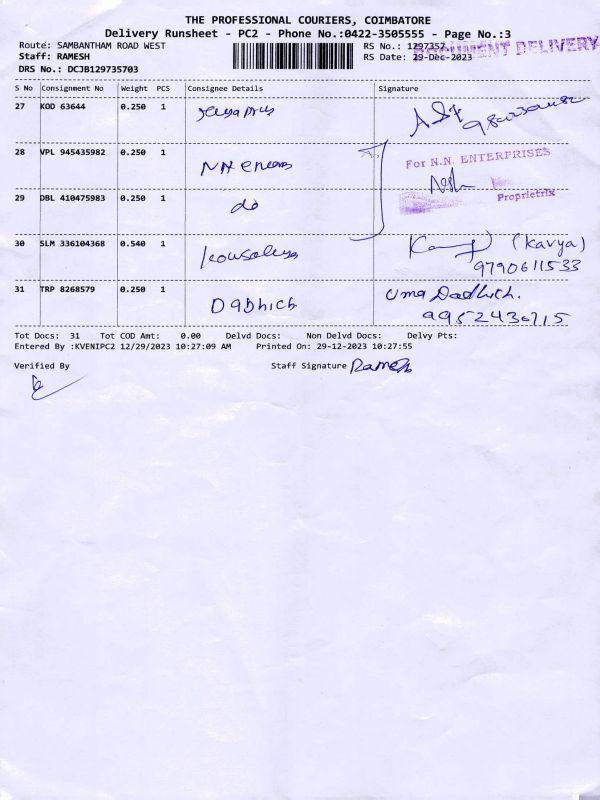 THE PROFESSIONAL COURIERS, COIMBATORE
Delivery Runsheet - PC2 - Phone No.:0422-3505555 - Page No.:3
Route: SAMBANTHAM ROAD WEST RS No.: 1297357 DOCUMENT DELIVERY
Staff: RAMESH RS Date: 29-Dec-2023
DRS No.: DCJB129735703
S No Consignment No Weight PCS Consignee Details Signature
27 KOD 63644 0.250 1
28 VPL 945435982 0.250 1 For N.N. ENTERPRISES
29 DBL 410475983 0.250 1 do Proprietrix
30 SLM 336104368 0.540 1 kousalya (Kavya)
9790611533
31 TRP 8268579 0.250 1 Dabhich Uma Dadhich.
9952436715
Tot Docs: 31 Tot COD Amt: 0.00 Delvd Docs: Non Delvd Docs: Delvy Pts:
Entered By :KVENIPC2 12/29/2023 10:27:09 AM Printed On: 29-12-2023 10:27:55
Verified By Staff Signature Ramesh